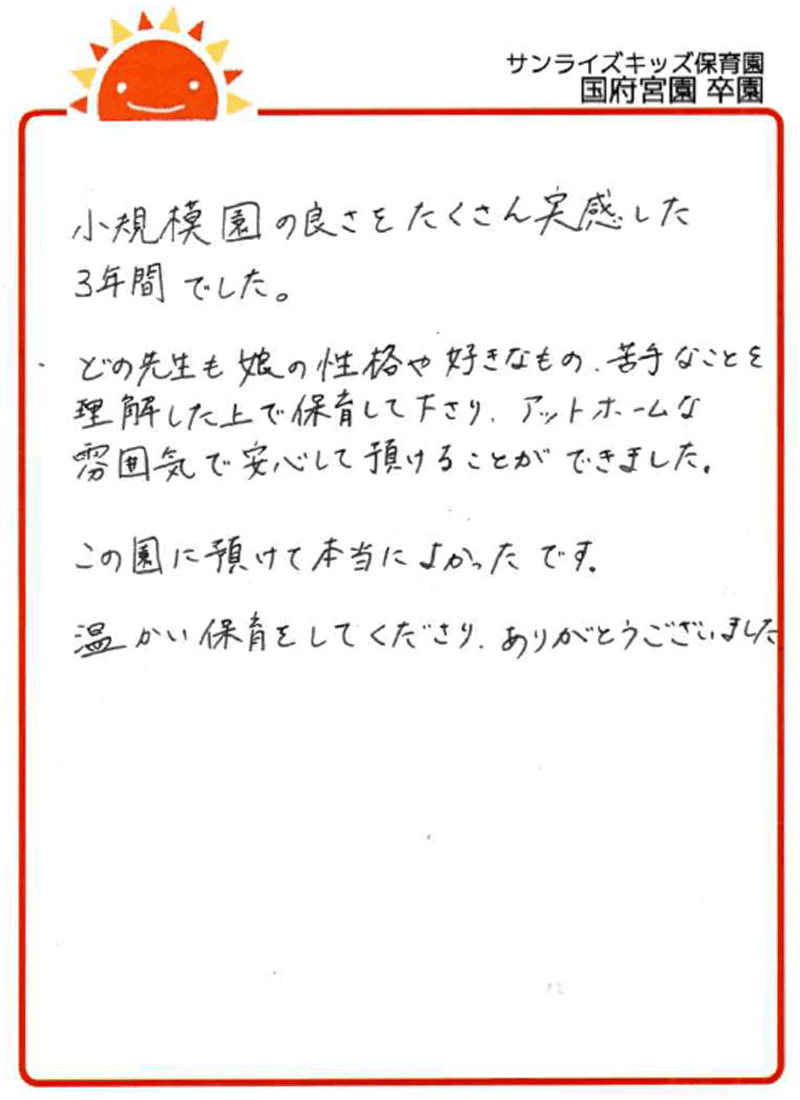 サンライズキッズ保育園
国府宮園 卒園
小規模園の良さをたくさん実感した
3年間でした。
どの先生も娘の性格や好きなもの、苦手なことを
理解した上で保育して下さり、アットホームな
雰囲気で安心して預けることができました。
この園に預けて本当によかったです。
温かい保育をしてくださり、ありがとうございました